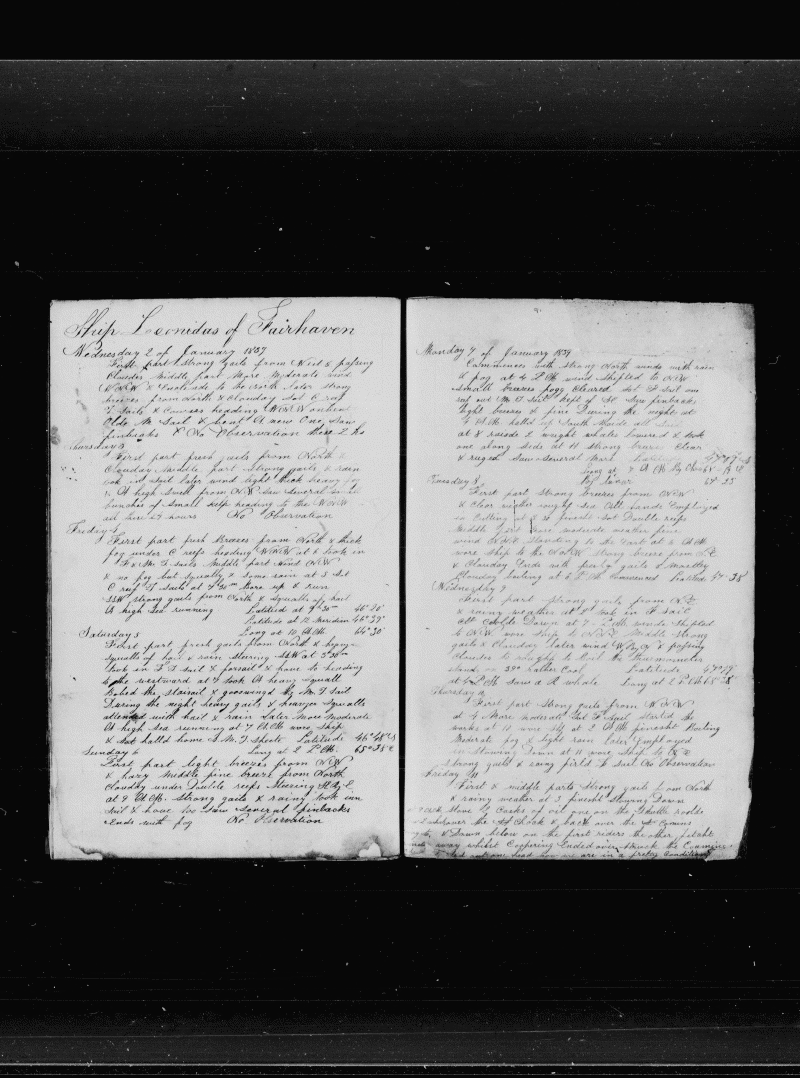 Ship Leonidas of Fairhaven
Wednesday 2 of January 1839
First part Strong gails from West & passing
Cloudes Middle part More Moderate wind
WNW & Later strong
breezes from North & Clouday Set C reef
T Sails & Courses heading WNW
Olde M Sail & bent A new One Saw
finbacks & No Observation
Thursday 3
First part fresh gails from North &
Clouday Middle part strong gails & rain
took in sail Later wind light thick heavy fog
& A high Swell from NW Saw Several
bunches of Small Kelp heading to the WNW
24 hours No Observation
Friday 4
First part fresh Breezes from North & thick
fog under C reefs heading WNW at 6 took in
F & M T sails Middle part wind NW
& no fog but Squally & some rain at 3 Set
C reef T Sails at 4 & rain
SSW strong gails from North & Squalls of hail
A high sea running Latitud at 9"30m 46°20'
Latitude at 12 Meridien 46°39'
Long at 10 AM 64°30'
Saturday 5
First part fresh gails from North & heavy
squalls of hail & rain Steering SSW at 3"30m
took in F T sail & foresail & hove to heading
to the westward at 4 took A heavy Squall
the staysail & the M T Sail
During the night heavy gails & heavy Squalls
attended with hail & rain Later More Moderate
A high sea running at 7 AM wore ship
& Set halld home & M T Sheets Latitude 46°48'S
Sunday 6 Long at 2 PM 65°35'
First part light breezes from NW
& hazy Middle fine breeze from North
Clouday under Double reefs Steering W by
at 9 AM Strong gails & rainy took in
Sail & hove too Saw Several finbacks
Ends with fog No Observation
Monday 7 of January 1839
Commences with strong North winds with rain
& fog at 4 PM wind Shifted to NW
small breezes fogg Cleared Set F Sail one
reef out M T Sail Saw finbacks
light breezes & fine During the night at
4 AM South Made all Sail
at 8 raisde 2 wright whales lowered & took
one along side at 11 strong breeze Clear
& rugged saw Several More Latitude 47°17'S
Long at 8 AM By
By Lunar 64 25
Tuesday 8
First part Strong breezes from NW
& Clear rather rough sea All hands Employed
in Cutting at 8 30 finesht Set Double reefs
Middle part more moderate weather fine
wind NNE Standing to the East at 6 AM
wore ship to the NW strong breeze from NE
& Clouday Ends with fresh gails & Moustly
Clouday boiling at 5 PM Comenced Latitud 47°38'
Wednesday 9
First part strong gails from NE
& rainy weather at 2 took in F sail
Down at 7 PM winds Shifted
to NW wore ship to NNE Middle Strong
gails & Clouday Later wind & passing
Cloudes to the Thermometer
stands 39° rather Cool Latitude 47°17'
at 2 PM Saw A R whale Long at 2 PM
Thursday 10
First part Strong gails from WNW
at 4 More Moderate Set F Sail started the
works at 10 wore ship at 2 AM finesht boiling
Moderat fog & light rain Later Employed
in Stowing Down at 11 wore ship to NE
strong gails & rainy firld F Sail No Observation
Friday 11
First & middle parts Strong gails from North
& rainy weather at 3 finesht Stowing Down
Casks of oil one on the
over the Aft Chock & back over the
& Down below on the first riders the other
away whilst Coopering Ended over struck the
one head now we are in a pretty Condition